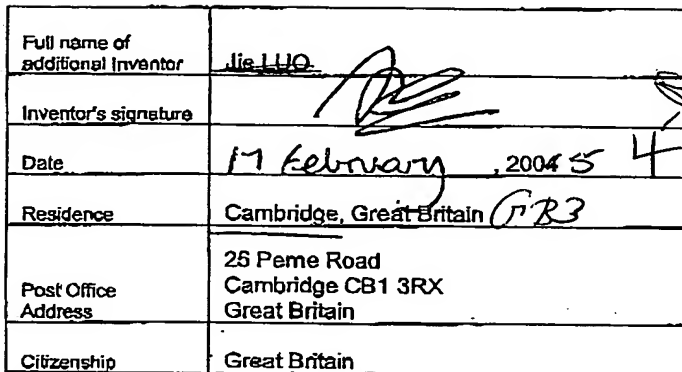 Full name of
additional Inventor
Jie LUO
Inventor's signature
Date
17 February, 2004 5 4
Residence
Cambridge, Great Britain GB3
Post Office
Address
25 Perne Road
Cambridge CB1 3RX
Great Britain
Citizenship
Great Britain